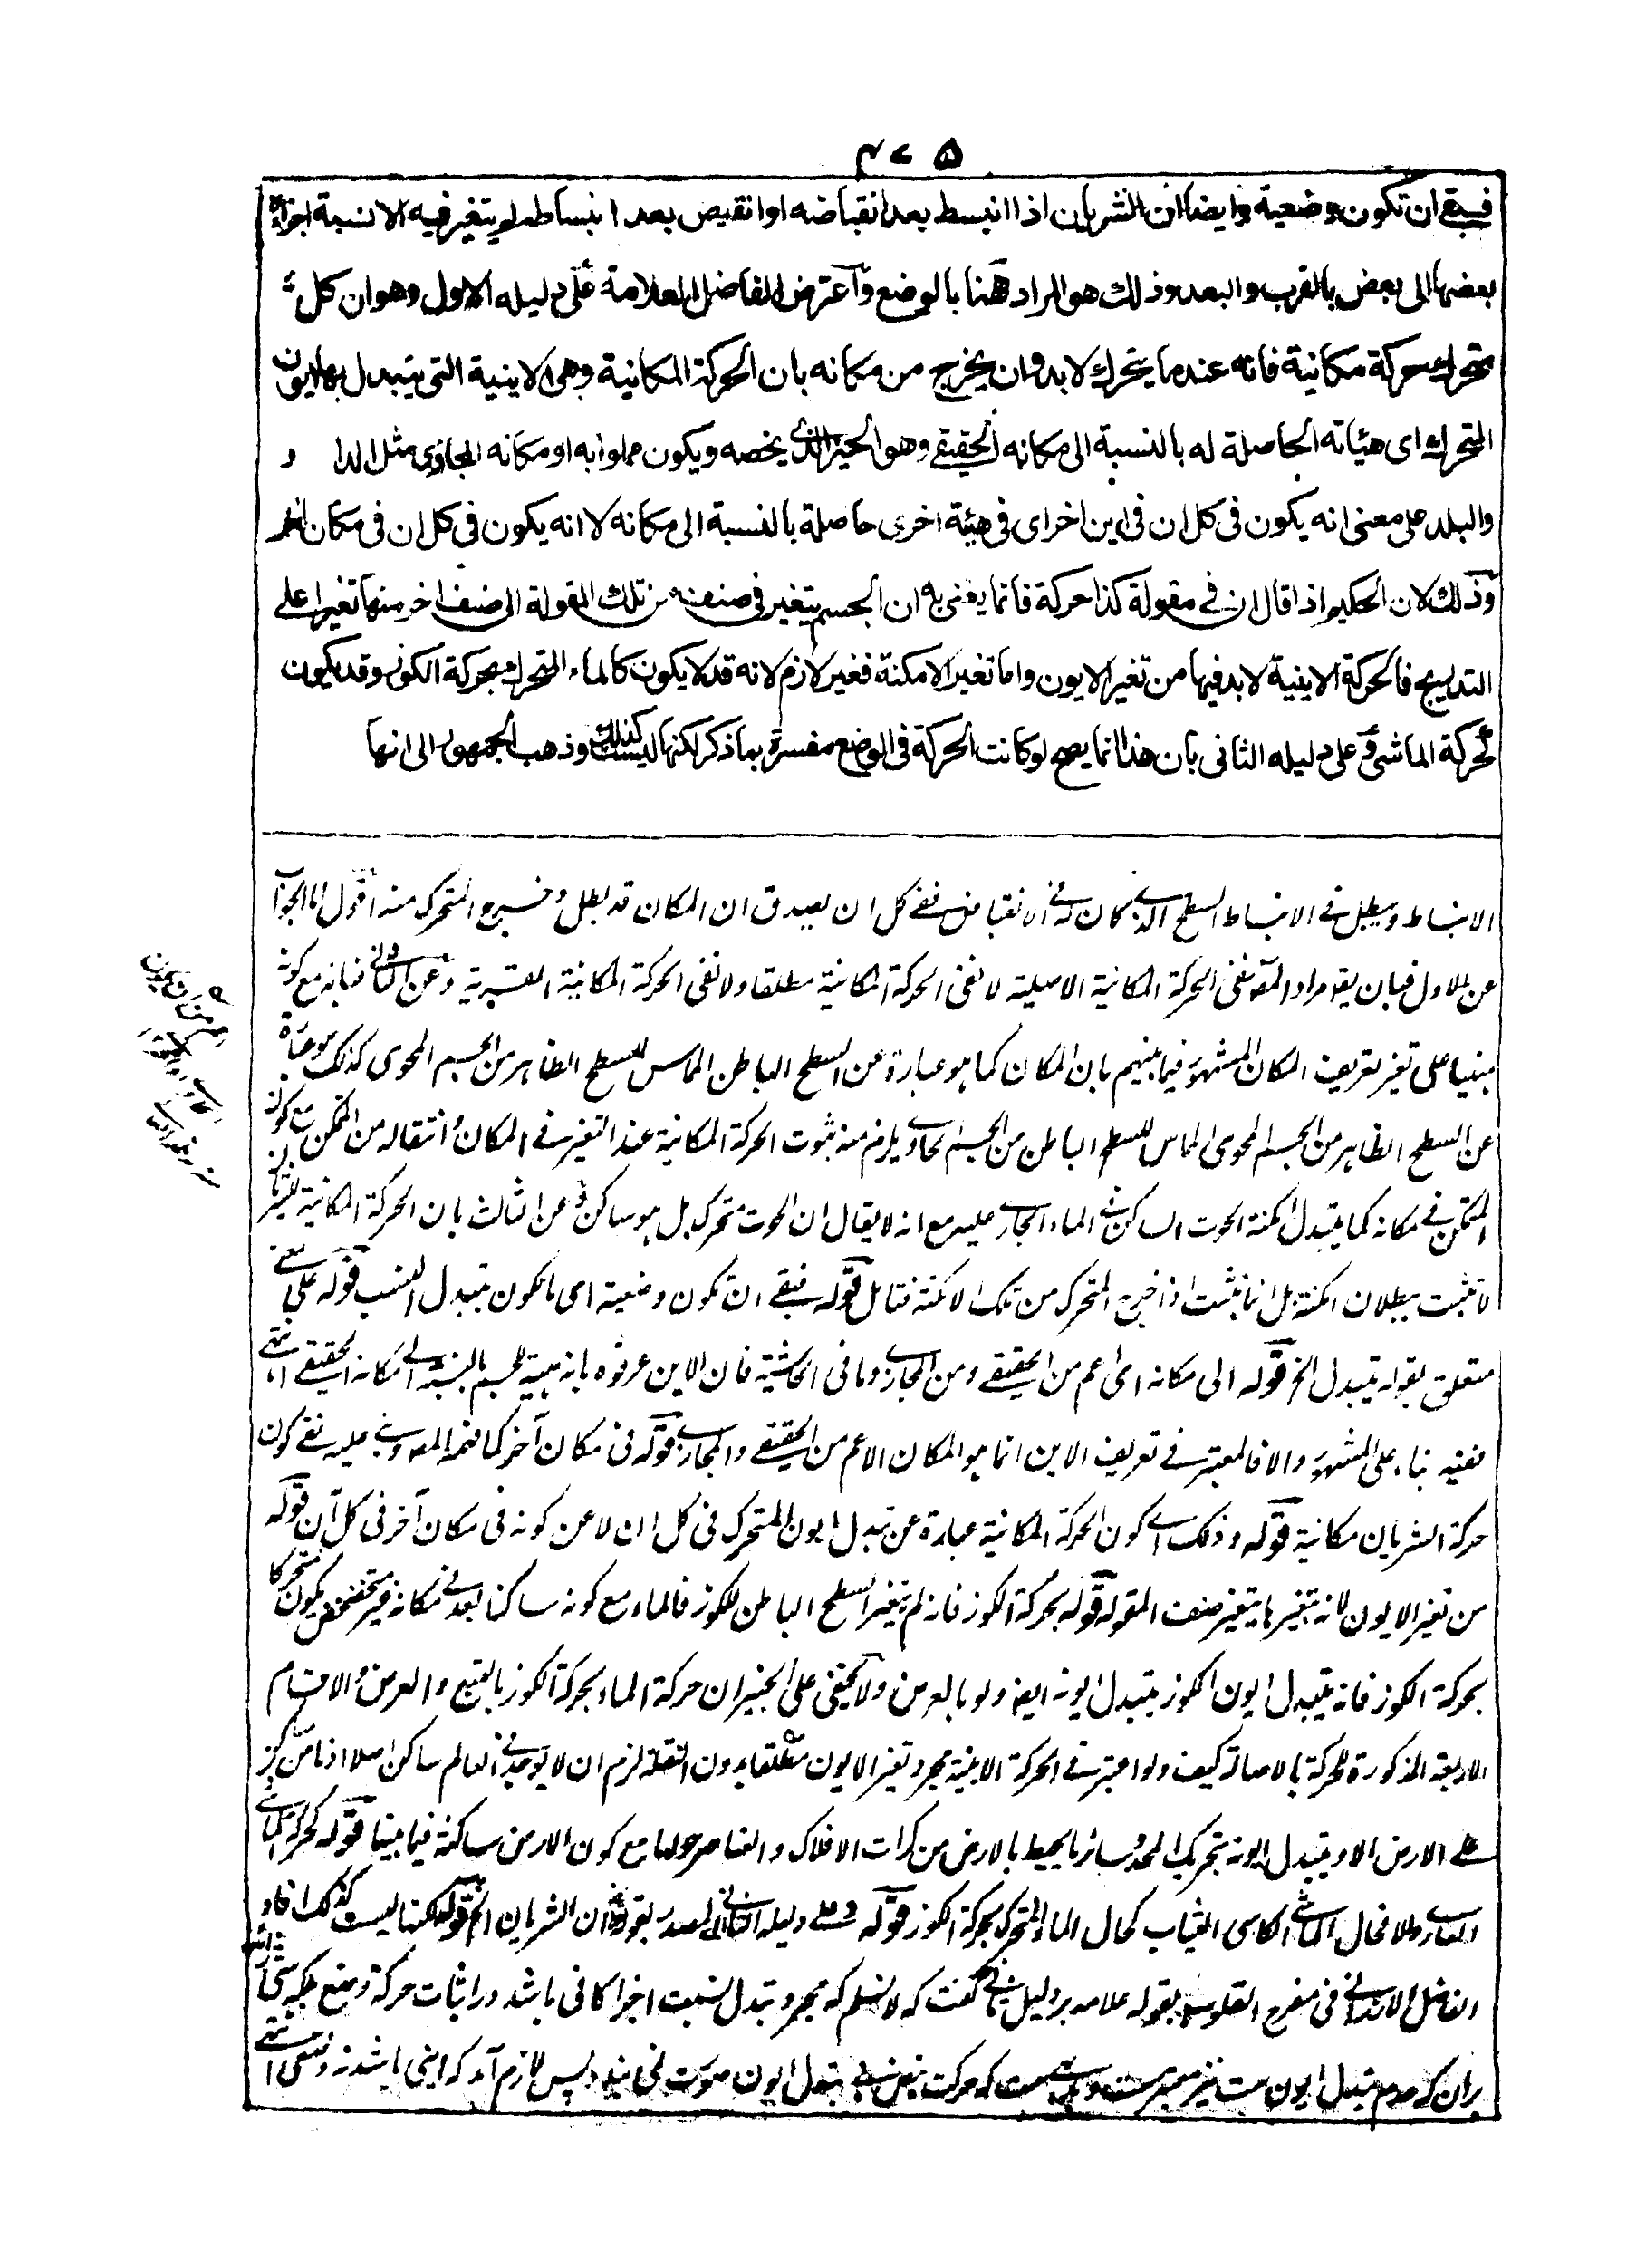 ۴۷۵
فبقي ان تكون وضعية وايضا ان الشريان اذا انبسط بعد انقباضه او انقبض بعد انبساطه لم يتغير فيه الا نسبة اجزائه
بعضها الى بعض بالقرب والبعد وذلك هو المراد ههنا بالوضع واعترض الفاضل العلامة على دليله الاول وهو ان كل
متحرك حركة مكانية فانه عندما يتحرك لا بد وان يخرج من مكانه بان الحركة المكانية وهي الاينية التي يتبدل بها ايون
المتحرك اى هيئاته الحاصلة له بالنسبة الى مكانه الحقيقي وهو الحيز الذي يخصه ويكون مملوا به او مكانه المجازى مثل الدار
والبلد على معنى انه يكون فى كل ان فى اين اخر اى فى هيئة اخرى حاصلة بالنسبة الى مكانه لا انه يكون فى كل ان فى مكان اخر
وذلك لان الحكيم اذا قال ان في مقولة كذا حركة فانما يعنى به ان الجسم يتغير فى صنف من تلك المقولة الى صنف اخر منها تغيرا على
التدريج فالحركة الاينية لا بد فيها من تغير الايون واما تغير الامكنة فغير لازم لانه قد لا يكون كالماء المتحرك بحركة الكوز وقد يكون
كحركة الماشى و على دليله الثانى بان هذا انما يصح لو كانت الحركة فى الوضع مفسرة بما ذكر لكنها ليست كذلك وذهب الجمهور الى انها
الانبساط ويبطل في الانبساط السطح الذي كان له في الانقباض ففي كل ان يصدق ان المكان قد بطل وخرج المتحرك منه اقول اما الجواب
عن الاول فبان يقو مراد المصنفى الحركة المكانية الاصلية لا نفى الحركة المكانية مطلقا ولا نفى الحركة المكانية القسرية وعن الثاني فبانه مع كونه
مبنيا على تغير تعريف المكان المشهور فيما بينهم بان المكان كما هو عبارة عن السطح الباطن المماس للسطح الظاهر من الجسم المحوى كذلك هو عبارة
عن السطح الظاهر من الجسم المحوى المماس للسطح الباطن من الجسم الحاوي يلزم منه ثبوت الحركة المكانية عند التغير في المكان وانتقاله من المتمكن مع كون
المتمكن في مكانه كما يتبدل امكنة الحوت الساكن في الماء الجاري عليه مع انه لا يقال ان الحوت متحرك بل هو ساكن وعن الثالث بان الحركة المكانية للشريان
لا تثبت ببطلان امكنته بل انما تثبت اذا خرج المتحرك من تلك الامكنة فتامل قوله فبقي ان تكون وضعية اى ما تكون بتبدل النسب قوله على معنى
متعلق بقوله يتبدل الخ قوله الى مكانه اى اعم من الحقيقي ومن المجازي وما فى الحاشية فان الاين عرفوه بانه هيئة للجسم بالنسبة الى مكانه الحقيقي انتهى
ففيه بناء على المشهور والا فالمعتبر في تعريف الاين انما هو المكان الاعم من الحقيقي والمجازي قوله فى مكان آخر كما فهمه المصنف وبنى عليه نفي كون
حركة الشريان مكانية قوله وذلك اى كون الحركة المكانية عبارة عن تبدل ايون المتحرك فى كل ان لا عن كونه فى مكان آخر فى كل آن قوله
من تغير الايون لانه بتغيرها يتغير صنف المقولة قوله بحركة الكوز فانه لم يتغير السطح الباطن للكوز فالماء مع كونه ساكنا بعد في مكانه غير متخضخض يكون متحركا
بحركة الكوز فانه بتبدل ايون الكوز يتبدل ايونه ايضا ولو بالعرض ولا يخفى على الخبير ان حركة الماء بحركة الكوز بالتبع والعرض والاقسام
الاربعة المذكورة للحركة بالاصالة كيف ولو اعتبر في الحركة الاينية مجرد تغير الايون مطلقا بدون النقلة لزم ان لا يوجد في العالم ساكن اصلا اذ ما من مركز
على الارض الا ويتبدل ايونه بتحريك المحدد وسائر ما يحيط بالارض من كرات الافلاك والعناصر حولها مع كون الارض ساكنة فيما بينا قوله كحركة الماشي
العاري والا فحال الماشي الكاسى الثياب كحال الماء المتحرك بحركة الكوز قوله وعلى دليله الثاني المصدر بقوله وايضا ان الشريان الخ قوله لكنها ليست كذلك افاد
الفاضل الارزاني فى مفرح القلوب بقوله علامه بر دليل ثانى گفت كه لا نسلم كه مجرد تبدل نسبت اجزا كافى باشد در اثبات حركة وضع بلكه شى زائد
بران كه عدم تبدل ايون ست نيز معتبرست كه حركت نبض بي تبدل ايون صورت نمى بندد پس لازم آمد كه اينى باشد نه وضعى انتهى